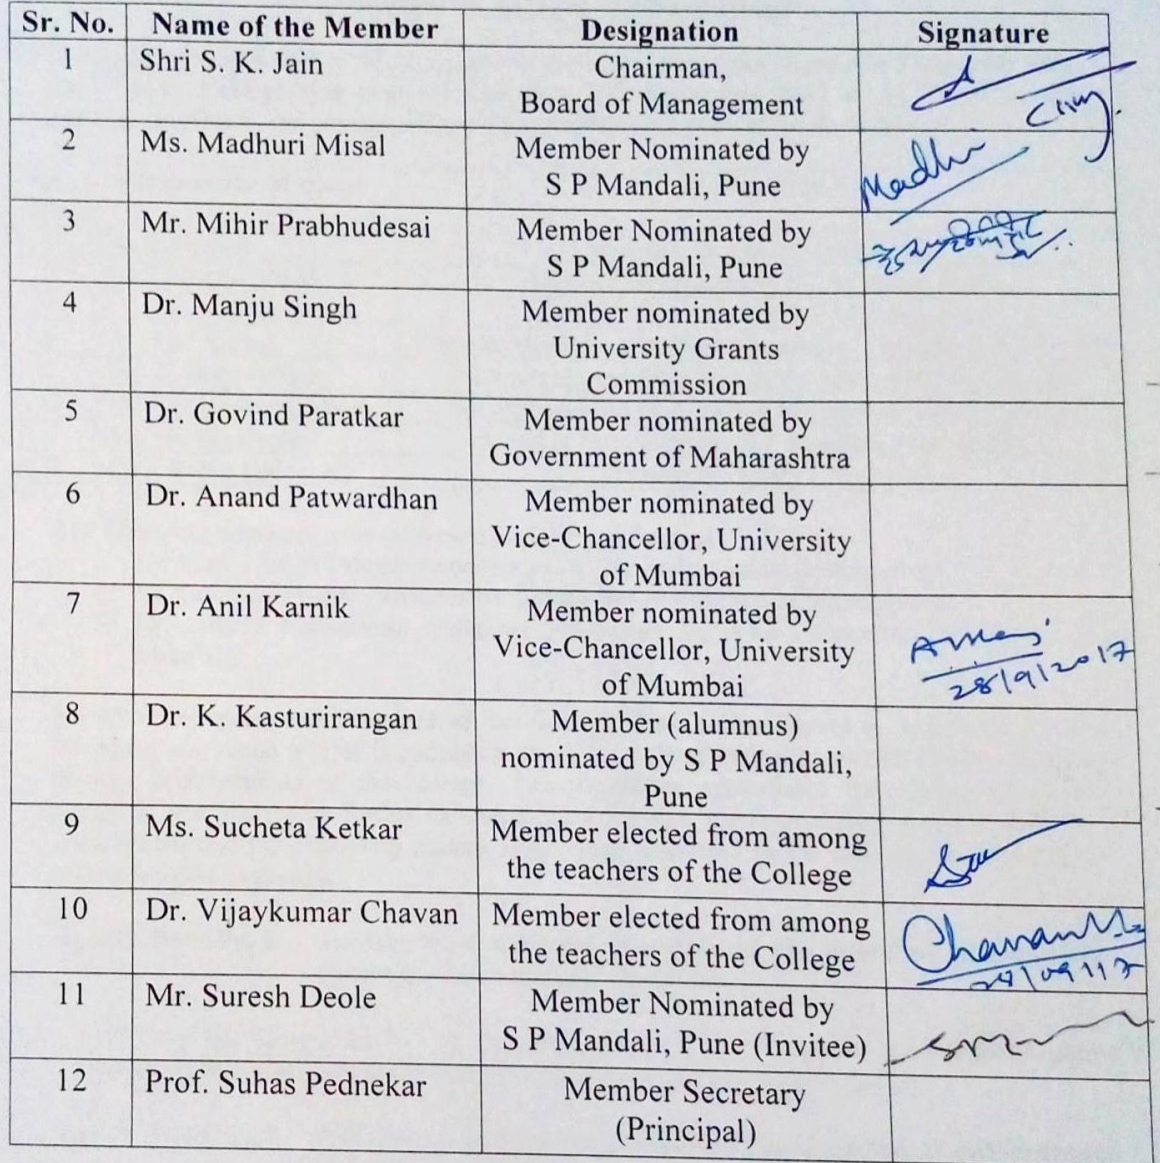 Sr. No. Name of the Member Designation Signature
1 Shri S. K. Jain Chairman,
Board of Management
2 Ms. Madhuri Misal Member Nominated by
S P Mandali, Pune
3 Mr. Mihir Prabhudesai Member Nominated by
S P Mandali, Pune
4 Dr. Manju Singh Member nominated by
University Grants
Commission
5 Dr. Govind Paratkar Member nominated by
Government of Maharashtra
6 Dr. Anand Patwardhan Member nominated by
Vice-Chancellor, University
of Mumbai
7 Dr. Anil Karnik Member nominated by
Vice-Chancellor, University
of Mumbai
28/9/2017
8 Dr. K. Kasturirangan Member (alumnus)
nominated by S P Mandali,
Pune
9 Ms. Sucheta Ketkar Member elected from among
the teachers of the College
10 Dr. Vijaykumar Chavan Member elected from among
the teachers of the College
28/09/17
11 Mr. Suresh Deole Member Nominated by
S P Mandali, Pune (Invitee)
12 Prof. Suhas Pednekar Member Secretary
(Principal)